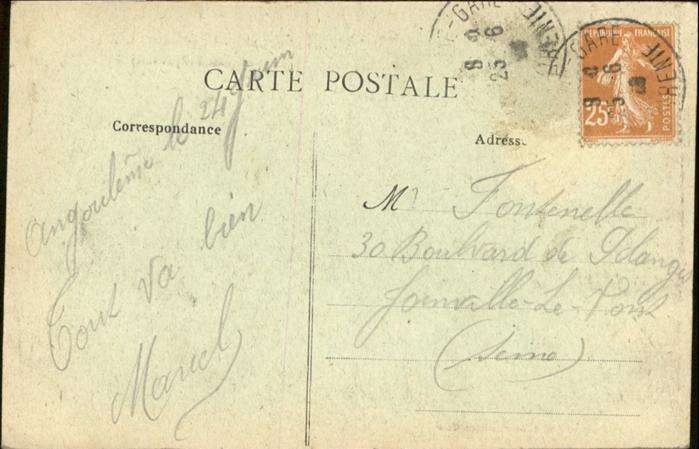 CARTE POSTALE
Correspondance
Angoulême le 24 Juin
Tout va bien
Marcel
Adresse
Mr Fontenelle
30 Boulevard de
Joinville-Le-Pont
(Seine)
REPUBLIQUE FRANÇAISE
25c
POSTES
GARE
VIENNE
25 6
GARE
VIENNE